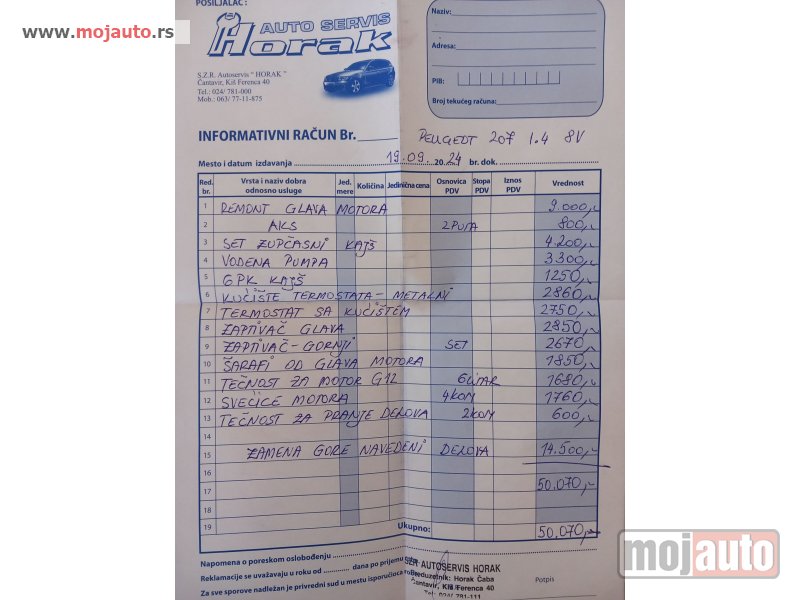 POSILJALAC :
www.mojauto.rs
AUTO SERVIS
Horak
S.Z.R. Autoservis " HORAK "
Čantavir, Kiš Ferenca 40
Tel.: 024/ 781-000
Mob.: 063/ 77-11-875
Naziv:
Adresa:
PIB:
Broj tekućeg računa:
INFORMATIVNI RAČUN Br. PEUGEOT 207 1.4 8V
Mesto i datum izdavanja 19.09. 20 24 br. dok.
Red. br. Vrsta i naziv dobra odnosno usluge Jed. mere Količina Jedinična cena Osnovica PDV Stopa PDV Iznos PDV Vrednost
1 REMONT GLAVA MOTORA 9.000,-
2 AKS 2 PUTA 800,-
3 SET ZUPČASNI KAJŠ 4.200,-
4 VODENA PUMPA 3300,-
5 6PK KAJŠ 1250,-
6 KUČIŠTE TERMOSTATA - METALNI 2860,-
7 TERMOSTAT SA KUČIŠTEM 2750,-
8 ZAPTIVAČ GLAVA 2850,-
9 ZAPTIVAČ - GORNJI SET 2670,-
10 ŠARAFI OD GLAVA MOTORA 1850,-
11 TEČNOST ZA MOTOR G12 6 LITAR 1680,-
12 SVEČICE MOTORA 4 KOM 1760,-
13 TEČNOST ZA PRANJE DELOVA 2 KOM 600,-
14
15 ZAMENA GORE NAVEDENI DELOVA 14.500,-
16
17 50.070,-
18
19 Ukupno: 50.070,-
Napomena o poreskom oslobođenju
Reklamacije se uvažavaju u roku od dana po prijemu
Za sve sporove nadležan je privredni sud u mestu isporučioca
SZR AUTOSERVIS HORAK
Preduzetnik: Horak Čaba
Čantavir, Kiš Ferenca 40
Tel: 024/ 781-111
Potpis
mojauto